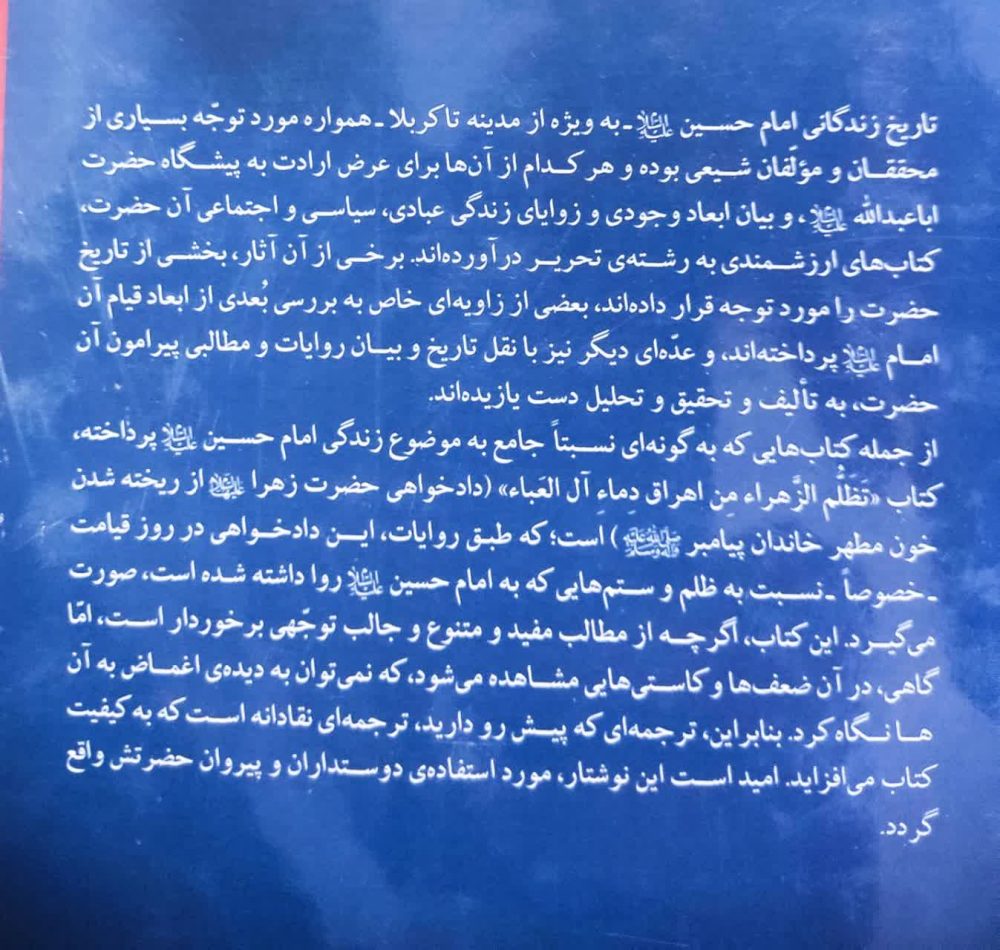 تاریخ زندگانی امام حسین علیه‌السلام ـ به ویژه از مدینه تا کربلا ـ همواره مورد توجّه بسیاری از
محققان و مؤلّفان شیعی بوده و هر کدام از آن‌ها برای عرض ارادت به پیشگاه حضرت
اباعبدالله علیه‌السلام، و بیان ابعاد وجودی و زوایای زندگی عبادی، سیاسی و اجتماعی آن حضرت،
کتاب‌های ارزشمندی به رشته‌ی تحریر درآورده‌اند. برخی از آن آثار، بخشی از تاریخ
حضرت را مورد توجه قرار داده‌اند، بعضی از زاویه‌ای خاص به بررسی بُعدی از ابعاد قیام آن
امام علیه‌السلام پرداخته‌اند، و عدّه‌ای دیگر نیز با نقل تاریخ و بیان روایات و مطالبی پیرامون آن
حضرت، به تألیف و تحقیق و تحلیل دست یازیده‌اند.
از جمله کتاب‌هایی که به گونه‌ای نسبتاً جامع به موضوع زندگی امام حسین علیه‌السلام پرداخته،
کتاب «تَظَلُّم الزَّهراء مِن اهراق دِماءِ آل العَباء» (دادخواهی حضرت زهرا علیهاالسلام از ریخته شدن
خون مطهر خاندان پیامبر صلی‌الله‌علیه‌وآله‌وسلم) است؛ که طبق روایات، این دادخواهی در روز قیامت
ـ خصوصاً ـ نسبت به ظلم و ستم‌هایی که به امام حسین علیه‌السلام روا داشته شده است، صورت
می‌گیرد. این کتاب، اگرچه از مطالب مفید و متنوع و جالب توجّهی برخوردار است، امّا
گاهی، در آن ضعف‌ها و کاستی‌هایی مشاهده می‌شود، که نمی‌توان به دیده‌ی اغماض به آن
ها نگاه کرد. بنابراین، ترجمه‌ای که پیش رو دارید، ترجمه‌ای نقادانه است که به کیفیت
کتاب می‌افزاید. امید است این نوشتار، مورد استفاده‌ی دوستداران و پیروان حضرتش واقع
گردد.